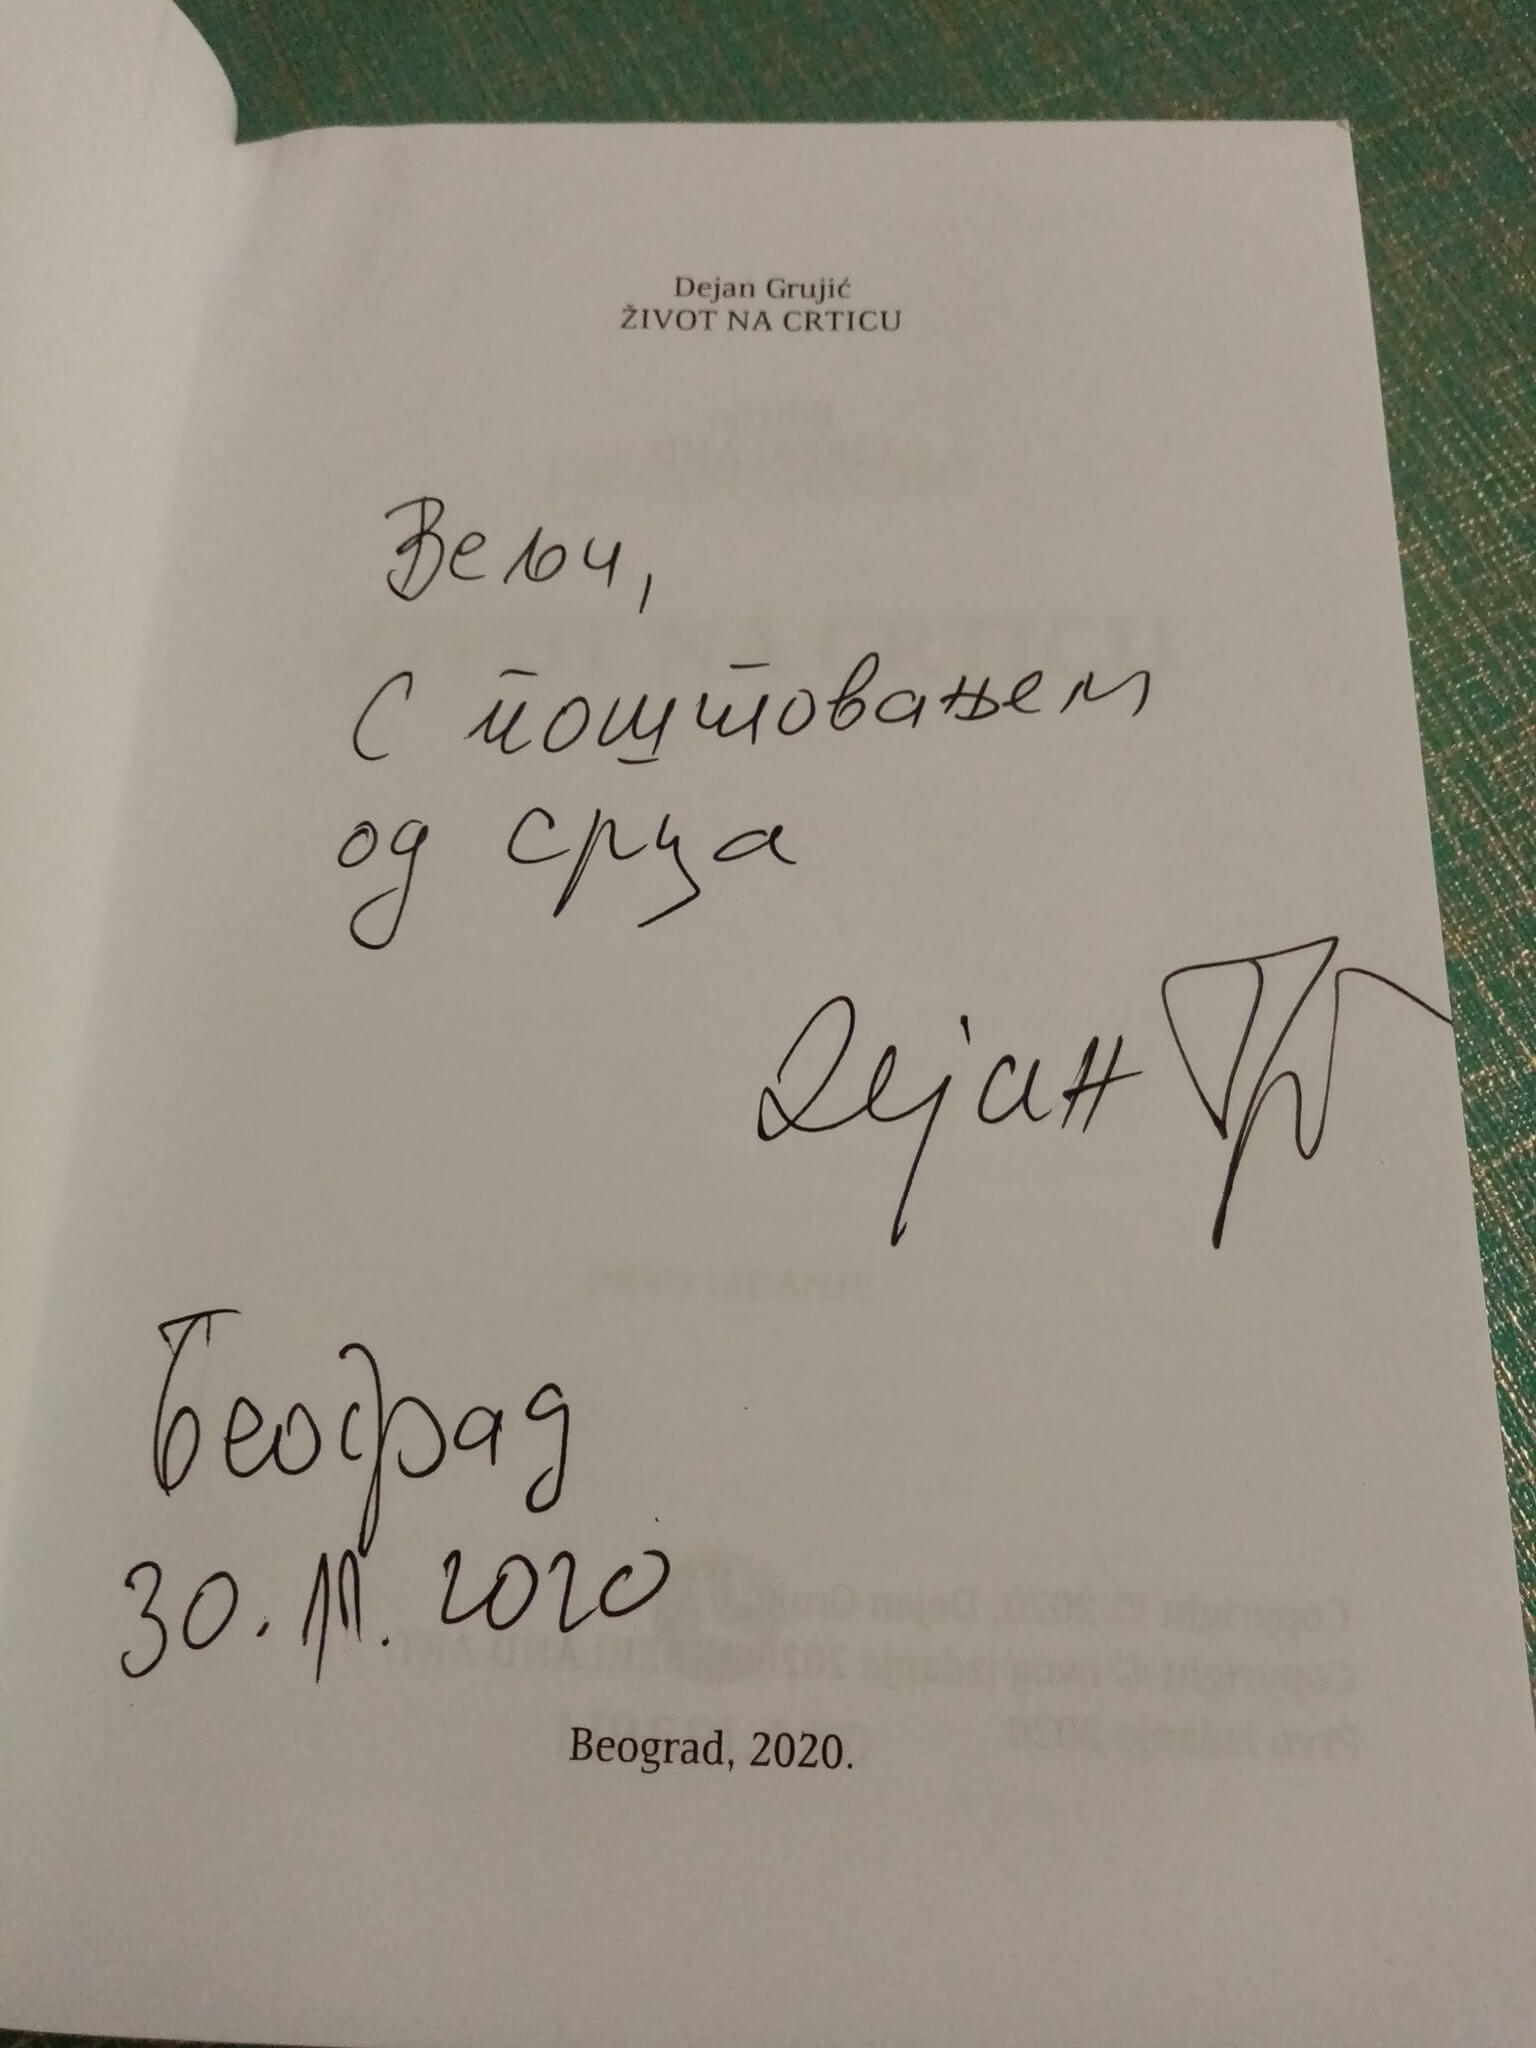 Dejan Grujić
ŽIVOT NA CRTICU
Вељи,
С поштовањем
од срца
Дејан
Београд
30. 11. 2020
Beograd, 2020.